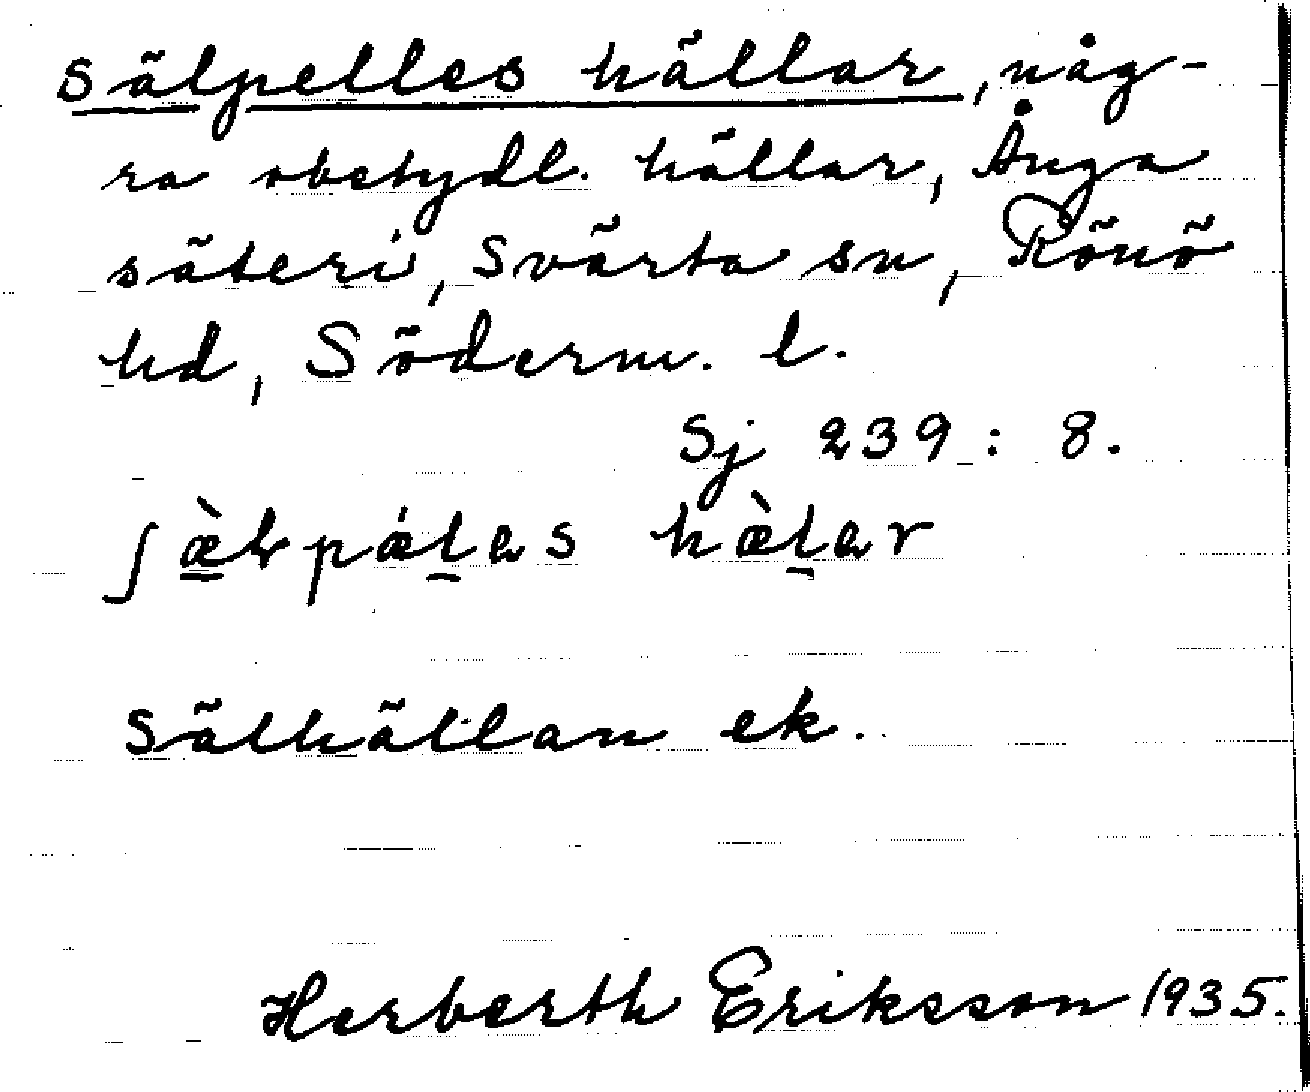 Sälpelles hällar, någ-
ra obetydl. hällar, Ånga
säteri, Svärta sn, Rönö
hd, Söderm. l.
Sj 239: 8.
hà̤ḻar
Sälhällan ek.
Herberth Eriksson 1935.